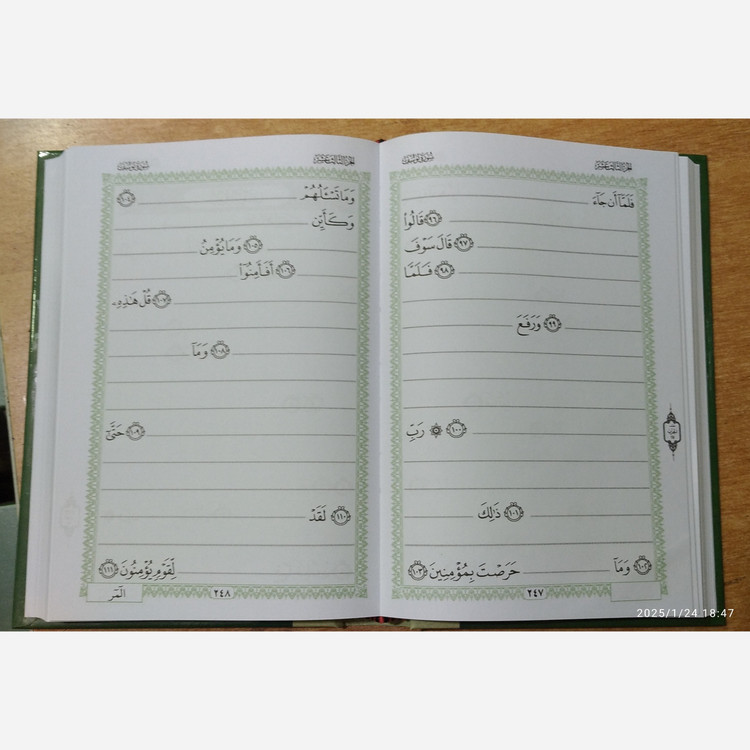 الجزء الثالث عشر
سورة يوسف
فَلَمَّآ أَن جَآءَ
٩٦ قَالُوا۟
٩٧ قَالَ سَوْفَ
٩٨ فَلَمَّا
٩٩ وَرَفَعَ
١٠٠ ۞ رَبِّ
١٠١ ذَٰلِكَ
١٠٢ وَمَآ حَرَصْتَ بِمُؤْمِنِينَ ١٠٣
٢٤٧
الجزء الثالث عشر
سورة يوسف
وَمَا تَسْـَٔلُهُمْ ١٠٤
وَكَأَيِّن
١٠٥ وَمَا يُؤْمِنُ
١٠٦ أَفَأَمِنُوٓا۟
١٠٧ قُلْ هَـٰذِهِۦ
١٠٨ وَمَآ
١٠٩ حَتَّىٰٓ
١١٠ لَقَدْ
لِّقَوْمٍ يُؤْمِنُونَ ١١١
٢٤٨
الٓمٓر
2025/1/24 18:47